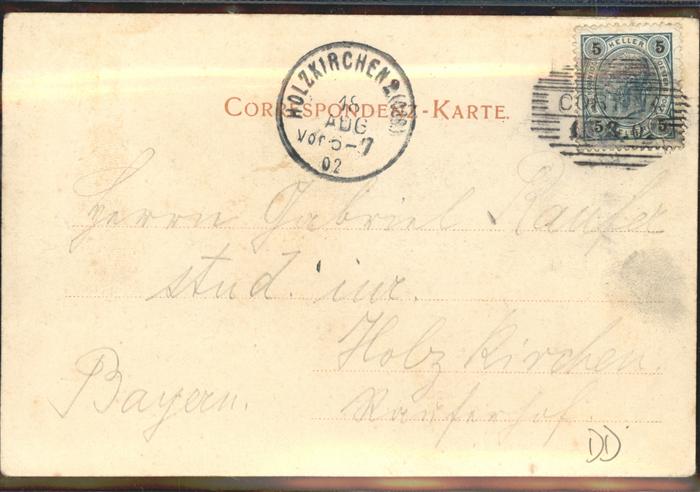 5 HELLER 5
HOLZKIRCHEN 2
18
AUG
Vor 6-7
02
CORRESPONDENZ-KARTE.
CORTINA
5 5
Herrn Gabriel Raufer
stud. iur.
Holzkirchen.
Bayern.
Rauferhof.
DD